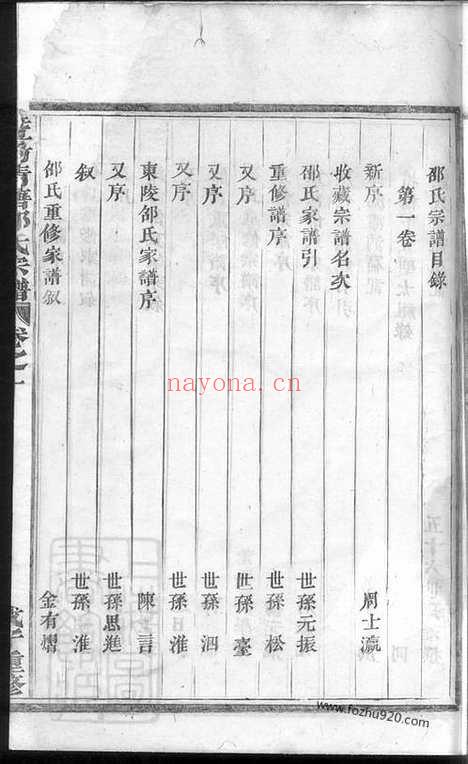 邵氏宗譜目錄
第一卷
新序 周士瀛
收藏宗譜名次
邵氏家譜引 世孫元振
重修譜序 世孫松
又序 世孫臺
又序 世孫泗
又序 世孫淮
東陵邵氏家譜序 陳言
又序 世孫思進
叙 世孫淮
邵氏重修家譜叙 金有熠
邵氏宗譜 卷之一
重修
nayona.cn
www.fozhu920.com